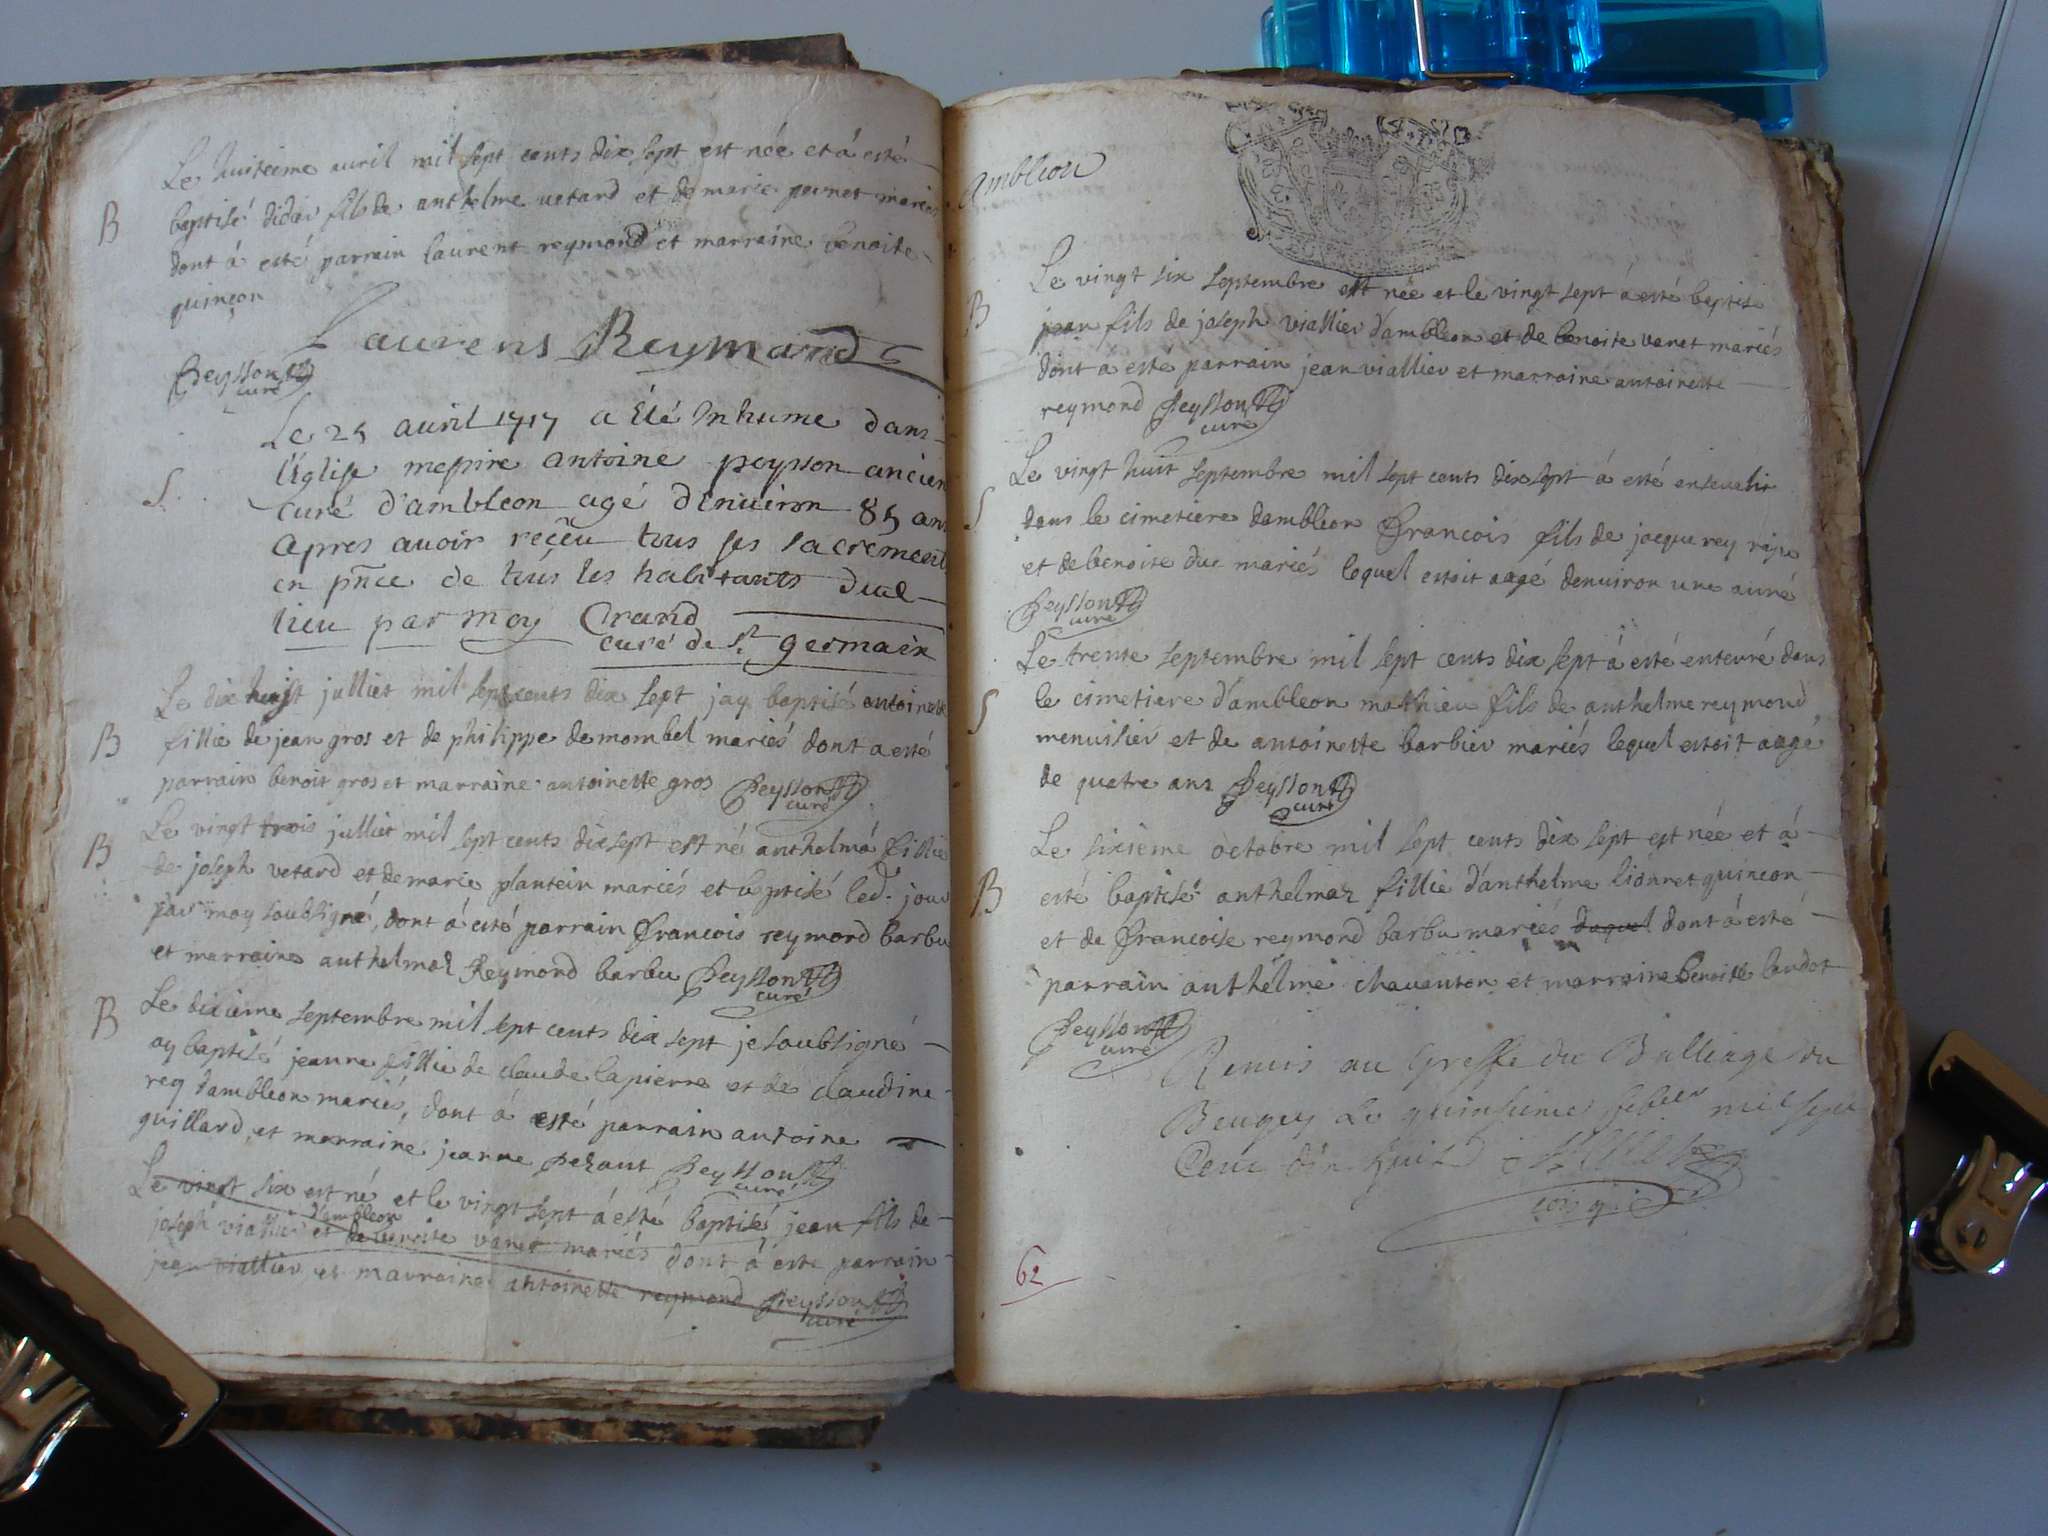 Le huitieme auril mil sept cents dix sept est née et á esté
B
baptisé didier fils de anthelme uetard et de marie peunet mariés
dont á esté parrain laurent reymond et marraine benoite
quinçon
Laurens Reymond
Peysson
curé
Le 25 auril 1717 a été Inhume dans
l'Eglise messire antoine peysson ancien
S.
curé d'ambleon agé denuiron 85 ans
apres auoir reçeu tous ses sacrements
en pñce de tous les habitants dud
lieu par moy Grand
curé de St germain
Le dix huist julliet mil sept cents dix sept jay baptisé antoinette
B
fillie de jean gros et de philippe de mombel mariés dont a esté
parrain benoit gros et marraine antoinette gros Peysson
curé
Le vingt trois julliet mil sept cents dix sept est né anthelma fillie
B
de joseph vetard et de marie plantein mariés et baptisé led. jour
par moy soubsigné, dont á esté parrain francois reymond barbu
et marraine anthelmaz Reymond barbu Peysson
curé
Le dixieme septembre mil sept cents dix sept je soubsigné
B
ay baptisé jeanne fillie de claude lapierre et de claudine
rey dambleon mariés, dont á esté parrain antoine
guillard et marraine jeanne pezant Peysson
curé
Le vingt six est né et le vingt sept á esté baptisé jean fils de
d'ambleon
joseph viallier et de benoite vanet mariés dont á esté parrain
jean viallier et marraine antoinette reymond Peysson
curé
Ambleon
Le vingt six septembre est née et le vingt sept á esté baptisé
B
jean fils de joseph viallier d'ambleon et de benoite vanet mariés
dont á esté parrain jean viallier et marraine antoinette
reymond Peysson
curé
Le vingt huit septembre mil sept cents dix sept á esté enseueli
S
dans le cimetiere dambleon francois fils de jacque rey
et de benoite duc mariés lequel estoit aagé denuiron une anné
Peysson
curé
Le trente septembre mil sept cents dix sept á esté enterré dans
S
le cimetiere d'ambleon mathieu fils de anthelme reymond
menuisier et de antoinette barbier mariés lequel estoit aagé
de quatre ans Peysson
curé
Le sixieme octobre mil sept cents dix sept est née et á
B
esté baptisé anthelmaz fillie d'anthelme lionnet quincon
et de francoise reymond barbu mariés duquel dont á esté
parrain anthelme chauanton et marraine benoite landot
Peysson
curé
Remis au Greffe du Balliage du
Beugey Le quinsieme feburier mil sept
Cent dix huit
62